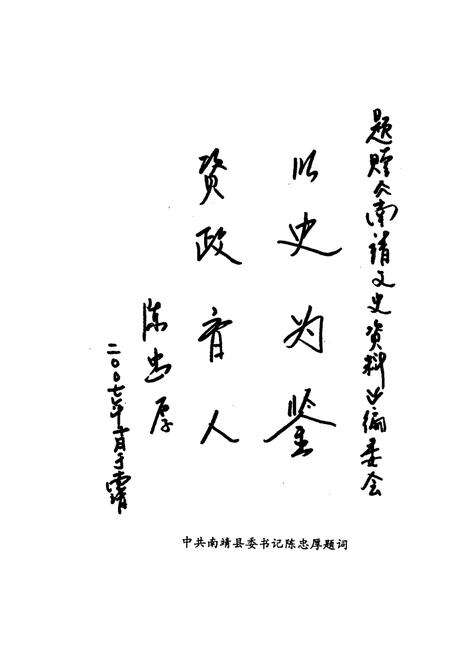 题赠《南靖文史资料》编委会
以史为鉴
资政育人
陈忠厚
二〇〇七年十月于南靖
中共南靖县委书记陈忠厚题词